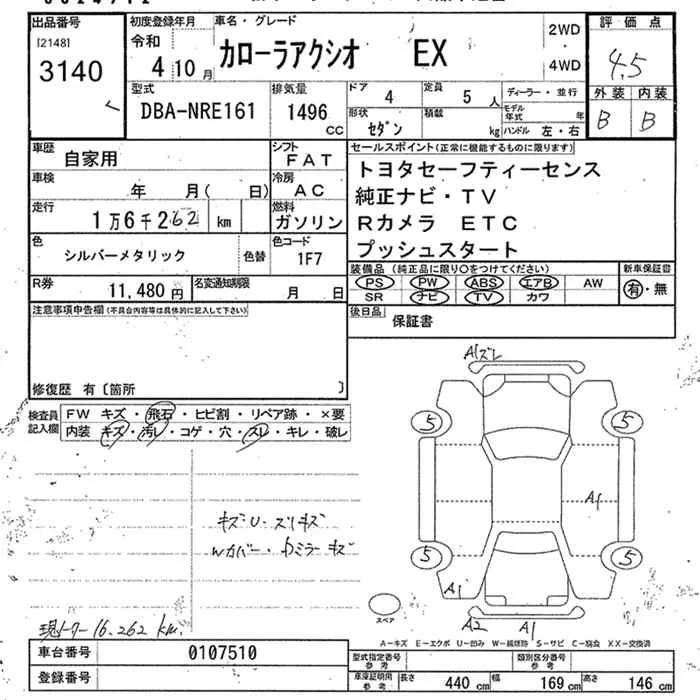 出品番号
[2148]
3140
初度登録年月
令和
4 10月
車名・グレード
カローラアクシオ EX
2WD
・
4WD
評価点
4.5
外装 内装
B B
型式
DBA-NRE161
排気量
1496
CC
ドア
4
定員
5 人
形状
セダン
積載
kg
ディーラー・並行
モデル年式 年
ハンドル 左・右
車歴
自家用
シフト
FAT
車検
年 月( 日)
冷房
AC
走行
1万6千262 km
燃料
ガソリン
色
シルバーメタリック
色替
色コード
1F7
R券
11,480 円
名変通知期限
月 日
セールスポイント(正常に機能するものに限ります)
トヨタセーフティーセンス
純正ナビ・TV
Rカメラ ETC
プッシュスタート
装備品(純正品に限り○をつけてください)
PS PW ABS エアB AW
SR ナビ TV カワ
新車保証書
有・無
後日品
保証書
注意事項申告欄(不具合内容等は具体的に記入して下さい)
修復歴 有〔箇所 〕
検査員
記入欄
FW キズ・飛石・ヒビ割・リペア跡・×要
内装 キズ・汚レ・コゲ・穴・スレ・キレ・破レ
キズ・U・スリキズ
Wカバー・
ミラーキズ
現メーター16,262 km
A1ズレ
5 5
A1
5 5
A1
A2 A1
スペア
A－キズ E－エクボ U－凹み W－補修跡 S－サビ C－腐食 XX－交換済
車台番号
0107510
登録番号
型式指定番号
参考
類別区分番号
参考
車庫証明用
参考
長さ 440 cm 幅 169 cm 高さ 146 cm